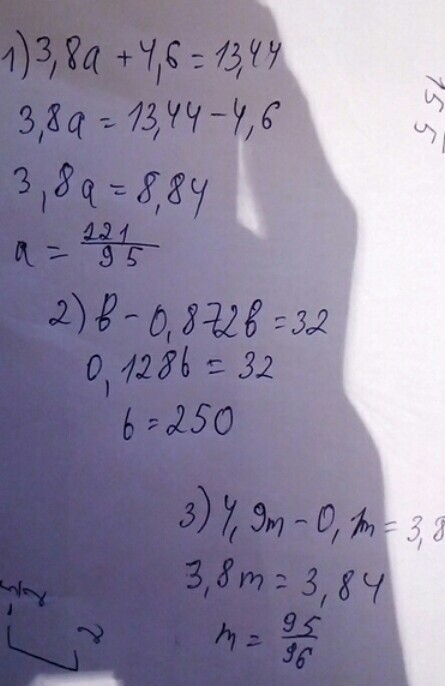 1) 3,8a + 4,6 = 13,44
3,8a = 13,44 - 4,6
3,8a = 8,84
a = 221/95
2) b - 0,872b = 32
0,128b = 32
b = 250
3) 4,9m - 0,1m = 3,8
3,8m = 3,84
m = 95/96